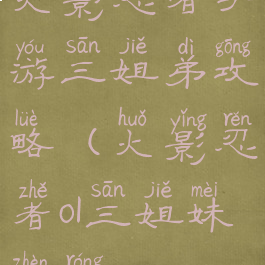 火影忍者
yóu sān jiě dì gōng
游三姐弟攻
lüè huǒ yǐng rěn
略(火影忍
zhě sān jiě mèi
者ol三姐妹
zhèn róng